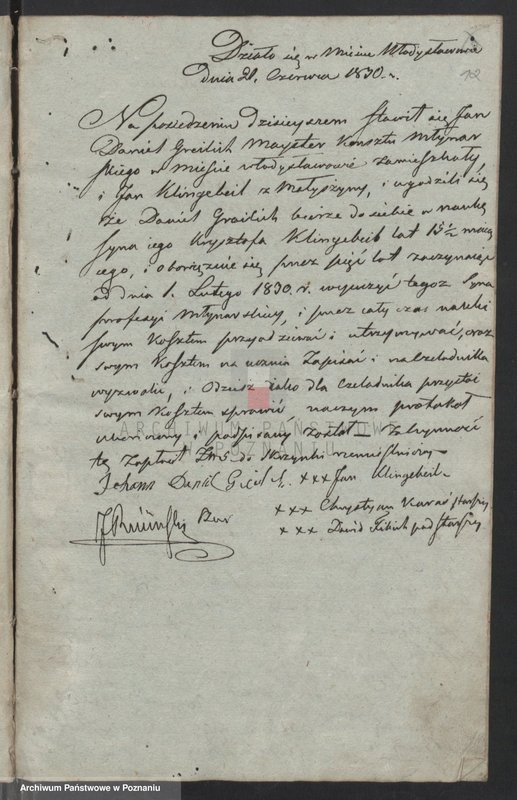 Działo się w Mieście Władysławowie
dnia 21. Czerwca 1830. r.
12
Na posiedzeniu dzisieyszem stawił się Jan
Daniel Greilich Mayster Konsztu Młynar
skiego w mieście Władysławowie zamieszkały,
i Jan Klingebeil z Małyszyny, i ugodzili się
że Daniel Grailich bierze do siebie w naukę
syna iego Krysztofa Klingebeil lat 15 1/2 mają
cego, i obowiązuie się przez pięć lat zaczynając
od dnia 1. Lutego 1830. r. wyuczyć tegoż syna
professyi Młynarskiey, i przez cały czas nauki
swym kosztem przyodziewać i utrzymywać, oraz
swym kosztem na ucznia zapisać i na czeladnika
wyzwolić, i odzież iako dla czeladnika przystoi
swym kosztem sprawić, na czym protokół
ukończony i podpisany został
tę zapłacił do skrzynki rzemieślniczey
Johann Daniel xxx Jan Klingebeil
xxx Chrystyan starszy
Bur xxx Dawid pod starszy
ARCHIWUM PAŃSTWOWE
W POZNANIU
Archiwum Państwowe w Poznaniu